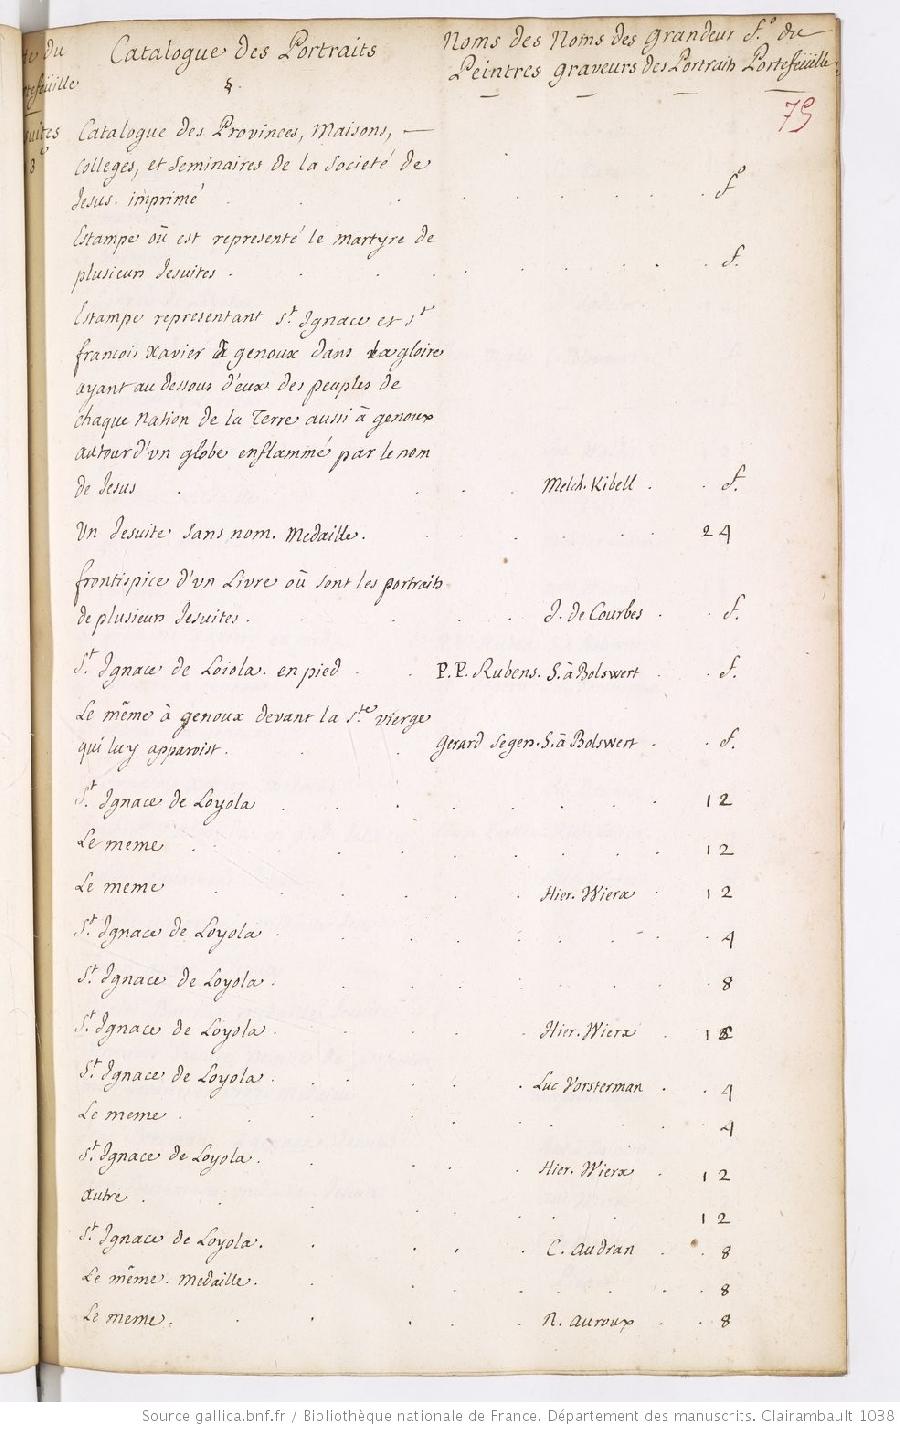 Catalogue des Portraits
Noms des Noms des grandeur f.º du
Peintres graveurs des Portraits Portefeüille
§.
79
Catalogue des Provinces, Maisons,
Colleges, et Seminaires de la Societé de
Jesus. imprimé . . . . . f.º
Estampe où est representé le martyre de
plusieurs Jesuites . . . . . f.
Estampe representant S.t Ignace et S.t
francois Xavier à genoux dans la gloire
ayant au dessous d'eux des peuples de
chaque Nation de la Terre aussi à genoux
autour d'un globe enflammé par le nom
de Jesus . . . Melch. Kibell . . f.
Un Jesuite sans nom. Medaille. . . . 24
frontispice d'un Livre où sont les portraits
de plusieurs Jesuites. . . . J. de Courbes . . f.
S.t Ignace de Loiola. en pied . . P. P. Rubens. S. à Bolswert . . f.
Le même à genoux devant la S.te vierge
qui luy apparoist. . . Gerard Segers. S. à Bolswert . . f.
S.t Ignace de Loyola . . . . 12
Le meme . . . . 12
Le meme . . . Hier. Wierx . 12
S.t Ignace de Loyola . . . . 4
S.t Ignace de Loyola . . . . 8
S.t Ignace de Loyola . . . Hier. Wierx . 18
S.t Ignace de Loyola . . . Luc Vorsterman . . 4
Le meme . . . . 4
S.t Ignace de Loyola. . . . Hier. Wierx . 12
autre . . . . 12
S.t Ignace de Loyola. . . . C. Audran . . 8
Le même. Medaille. . . . 8
Le meme. . . . N. Auroux . . 8
Source gallica.bnf.fr / Bibliothèque nationale de France. Département des manuscrits. Clairambault 1038